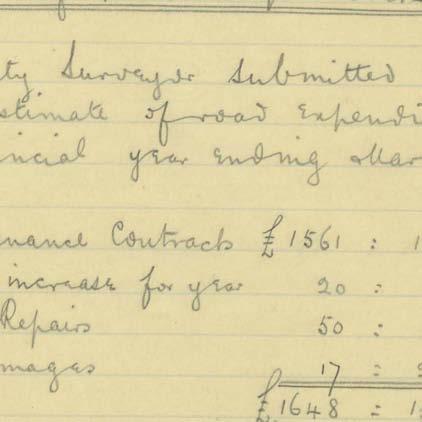 ty Surveyor Submitted
stimate of road Expendi
ncial year ending Mar
nance Contracts £1561 : 1
increase for year 20 :
Repairs 50 :
mages 17 :
£1648 : 1